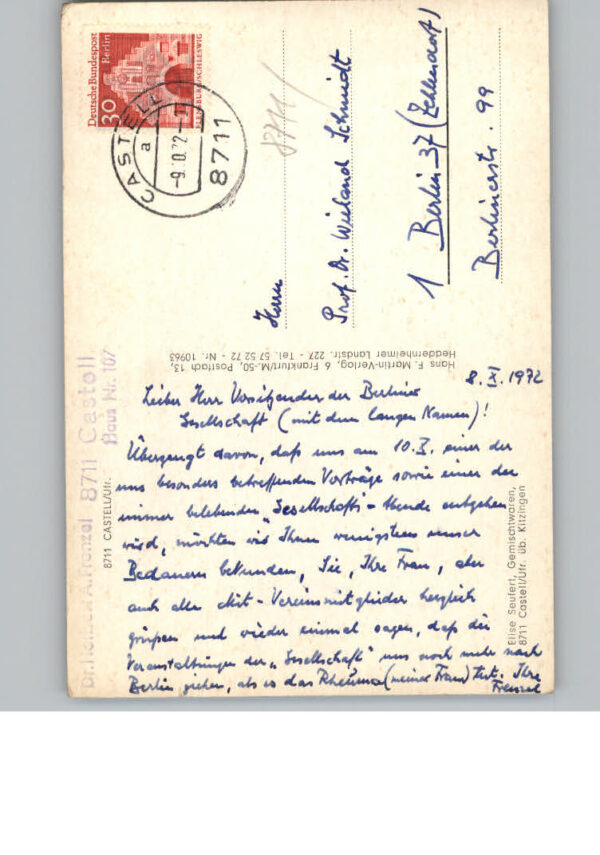 Deutsche Bundespost
Berlin
30
FLENSBURG/SCHLESWIG
CASTELL
a
-9.10.72
8711
8711
Herrn
Prof. Dr. Wieland Schmidt
1 Berlin 37 (Zehlendorf)
Berlinerstr. 99
Hans F. Martin-Verlag, 6 Frankfurt/M.-50, Postfach 13,
Heddernheimer Landstr. 227 - Tel. 57 52 72 - Nr. 10963
8711 Castell
Haus Nr. 107
8711 CASTELL/Ufr.
Elise Seufert, Gemischtwaren,
8711 Castell/Ufr. üb. Kitzingen
8. X. 1972
Lieber Herr Vorsitzender der Berliner
Gesellschaft (mit dem langen Namen)!
Überzeugt davon, daß uns am 10. X. einer der
uns besonders betreffenden Vorträge sowie einer der
immer belebenden „Gesellschafts-Abende entgehen
wird, möchten wir Ihnen wenigstens unser
Bedauern bekunden, Sie, Ihre Frau, aber
auch alle Mit-Vereinsmitglieder herzlich
grüßen und wieder einmal sagen, daß die
Veranstaltungen der „Gesellschaft" uns noch mehr nach
Berlin ziehen, als es das Rheuma (meiner Frau) tut. Ihre
Frenzel